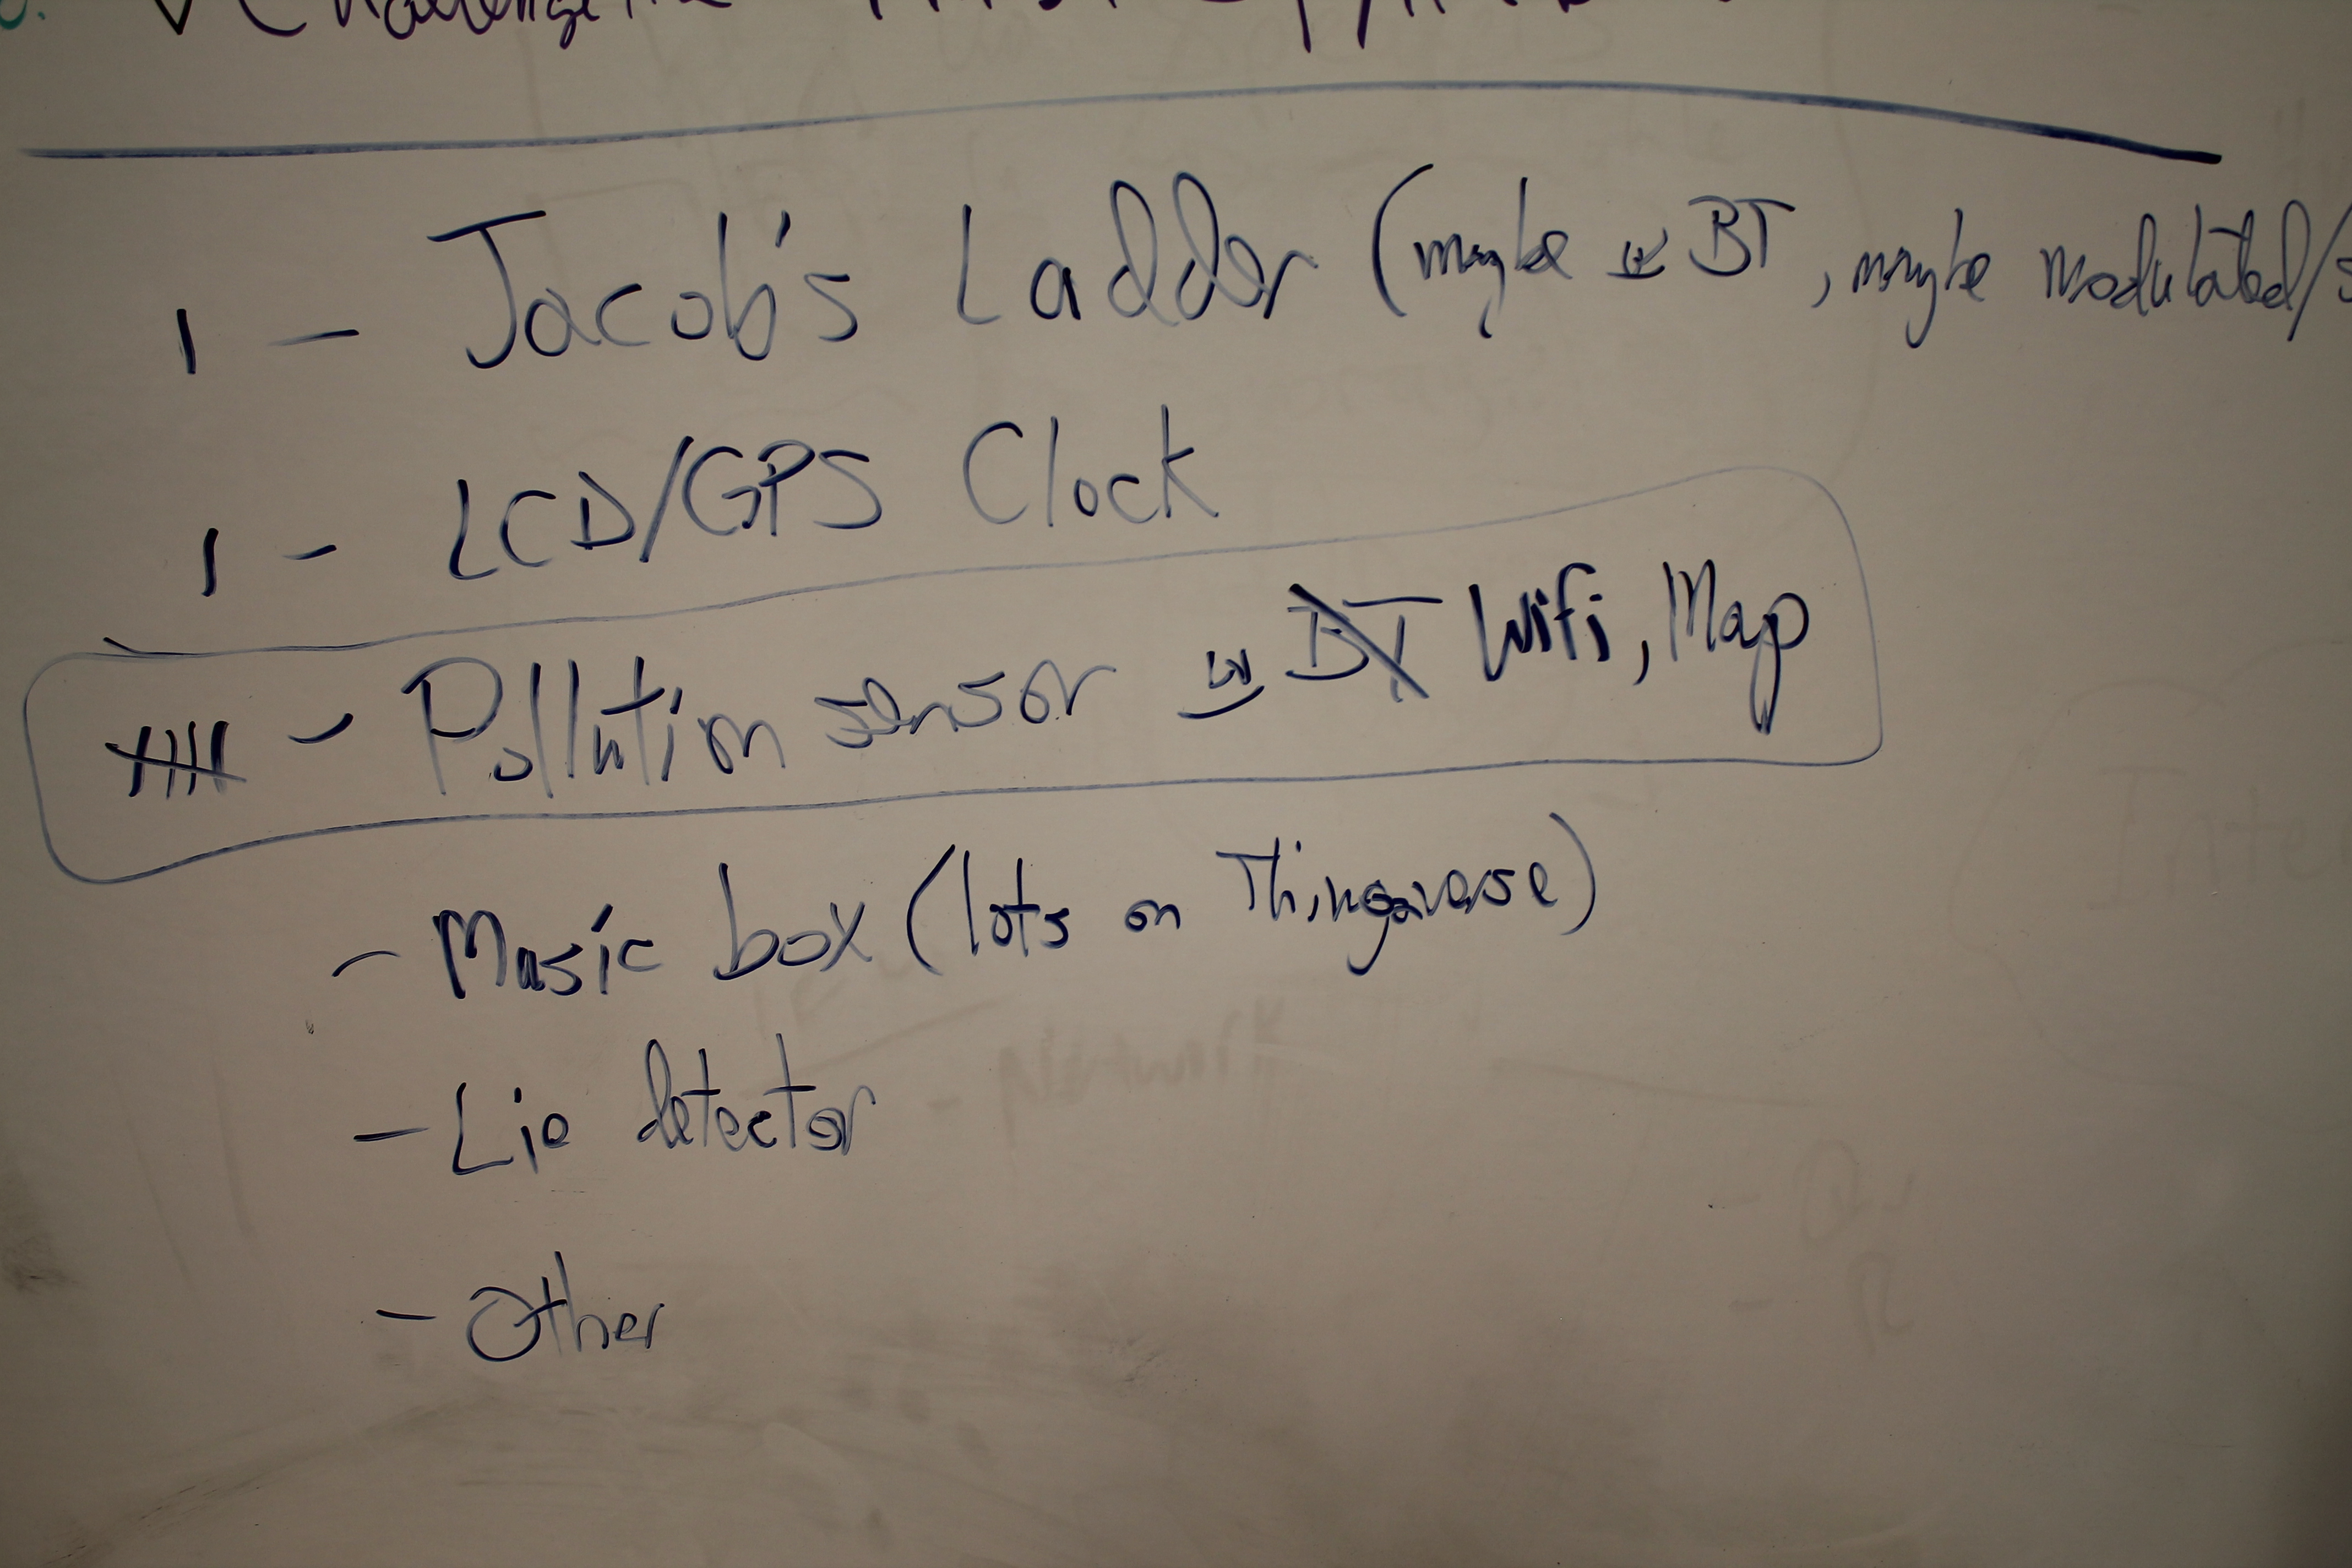 1 - Jacob's Ladder (maybe w BT, maybe modulated/
1 - LCD/GPS Clock
- Pollution sensor w BT Wifi, Map
- Music box (lots on Thingiverse)
- Lie detector
- Other